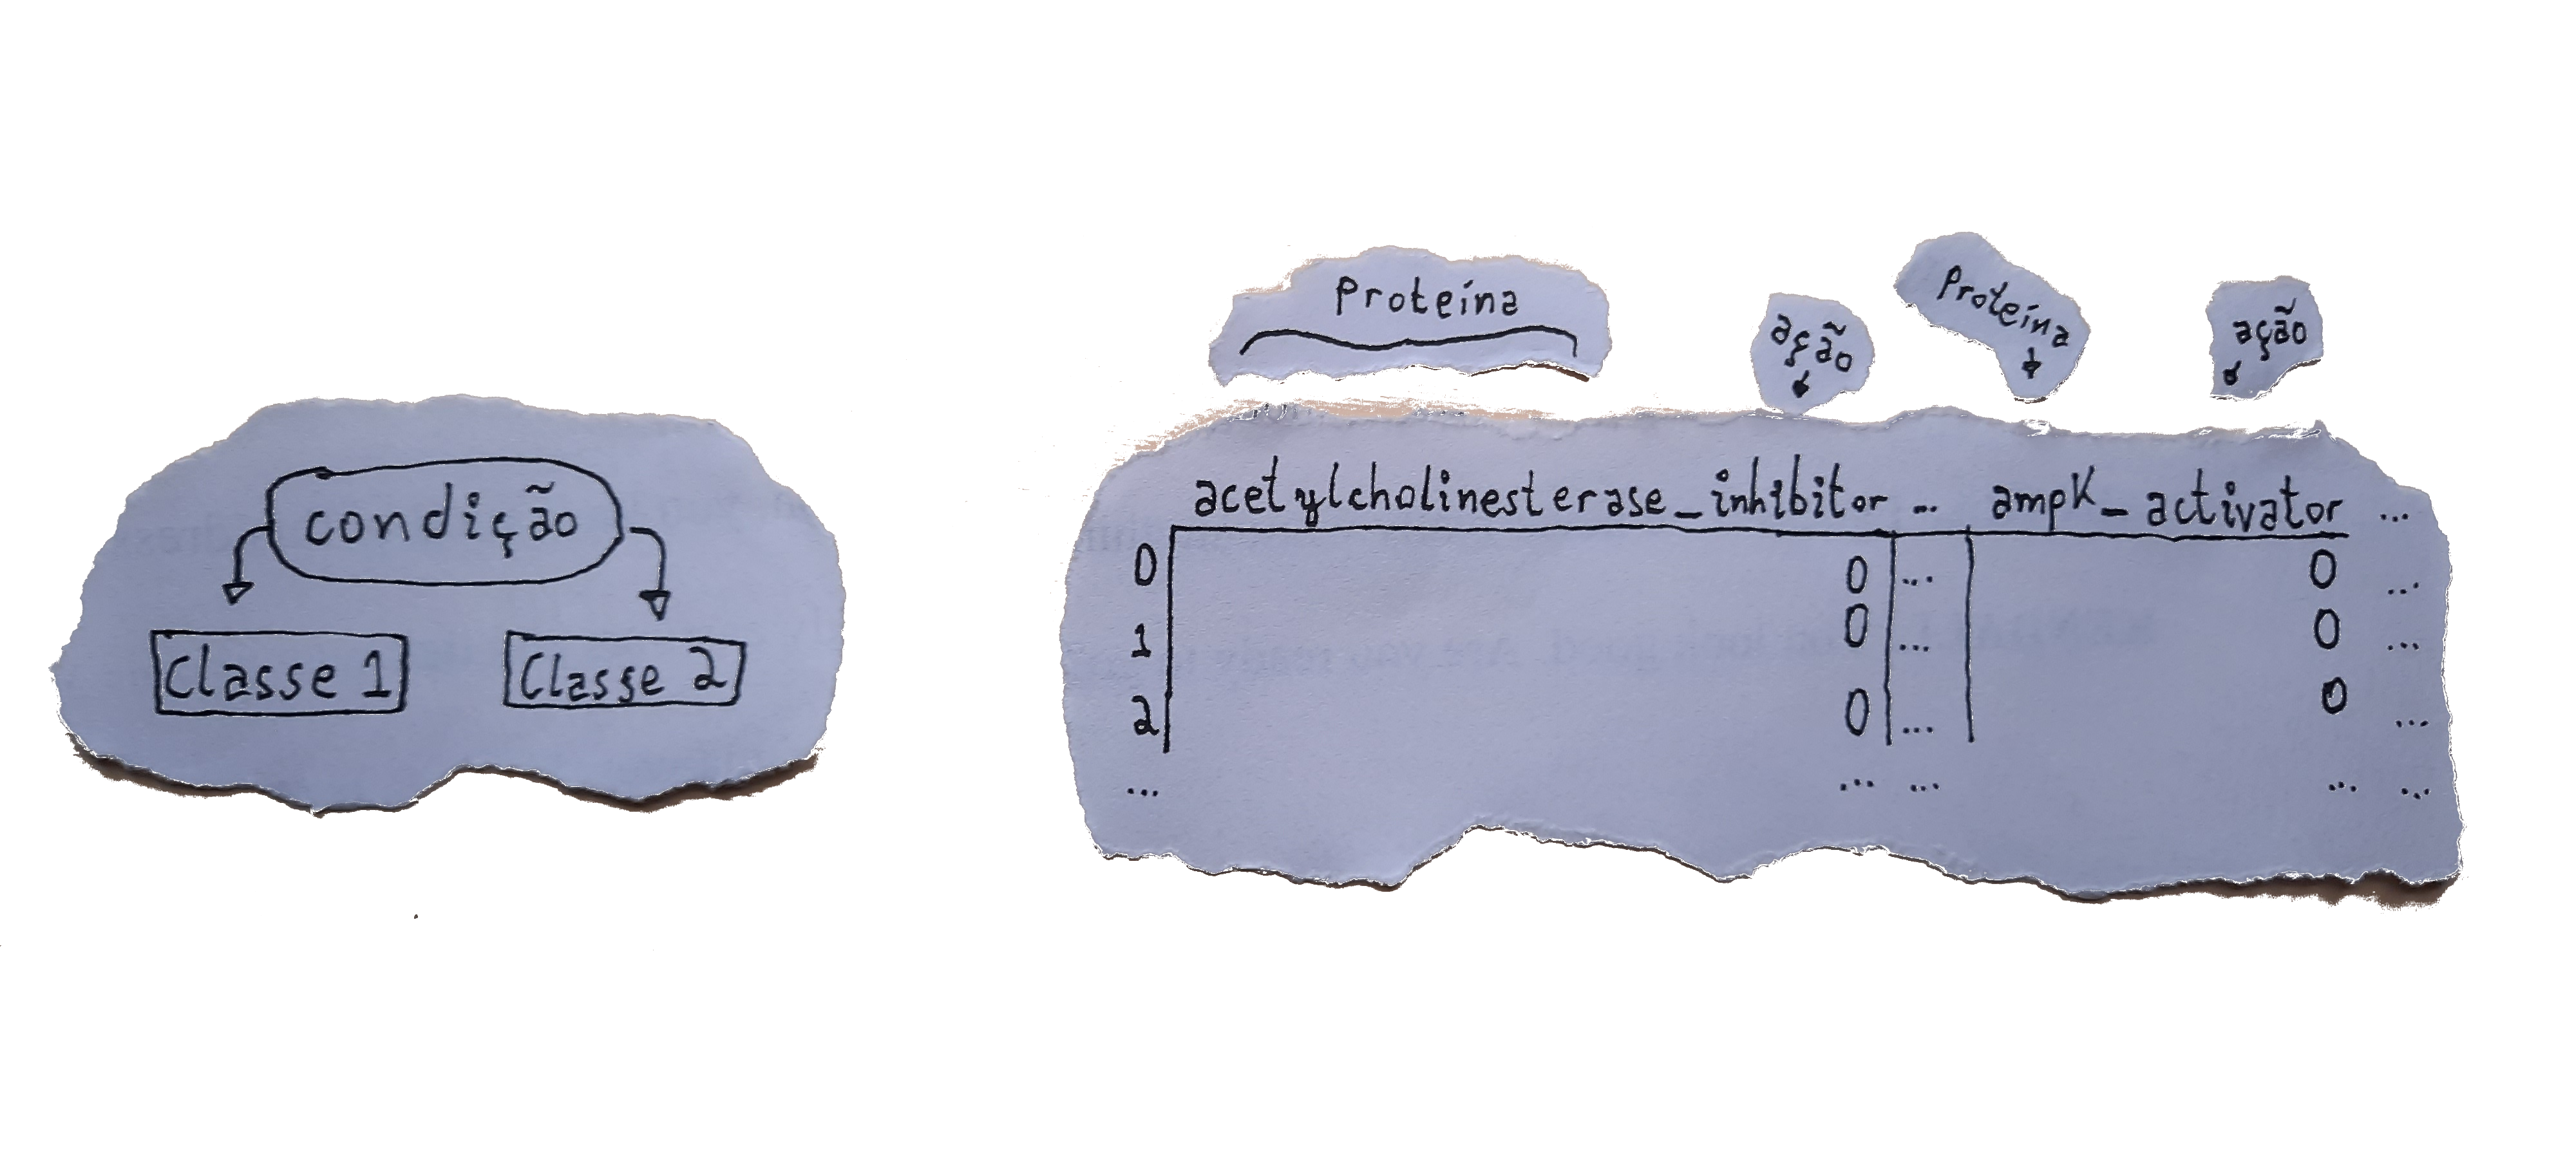 condição
Classe 1
Classe 2
Proteína
ação
Proteína
ação
acetylcholinesterase_inhibitor ... ampK_activator ...
0 0 ... 0 ...
1 0 ... 0 ...
2 0 ... 0 ...
... ... ... ... ...